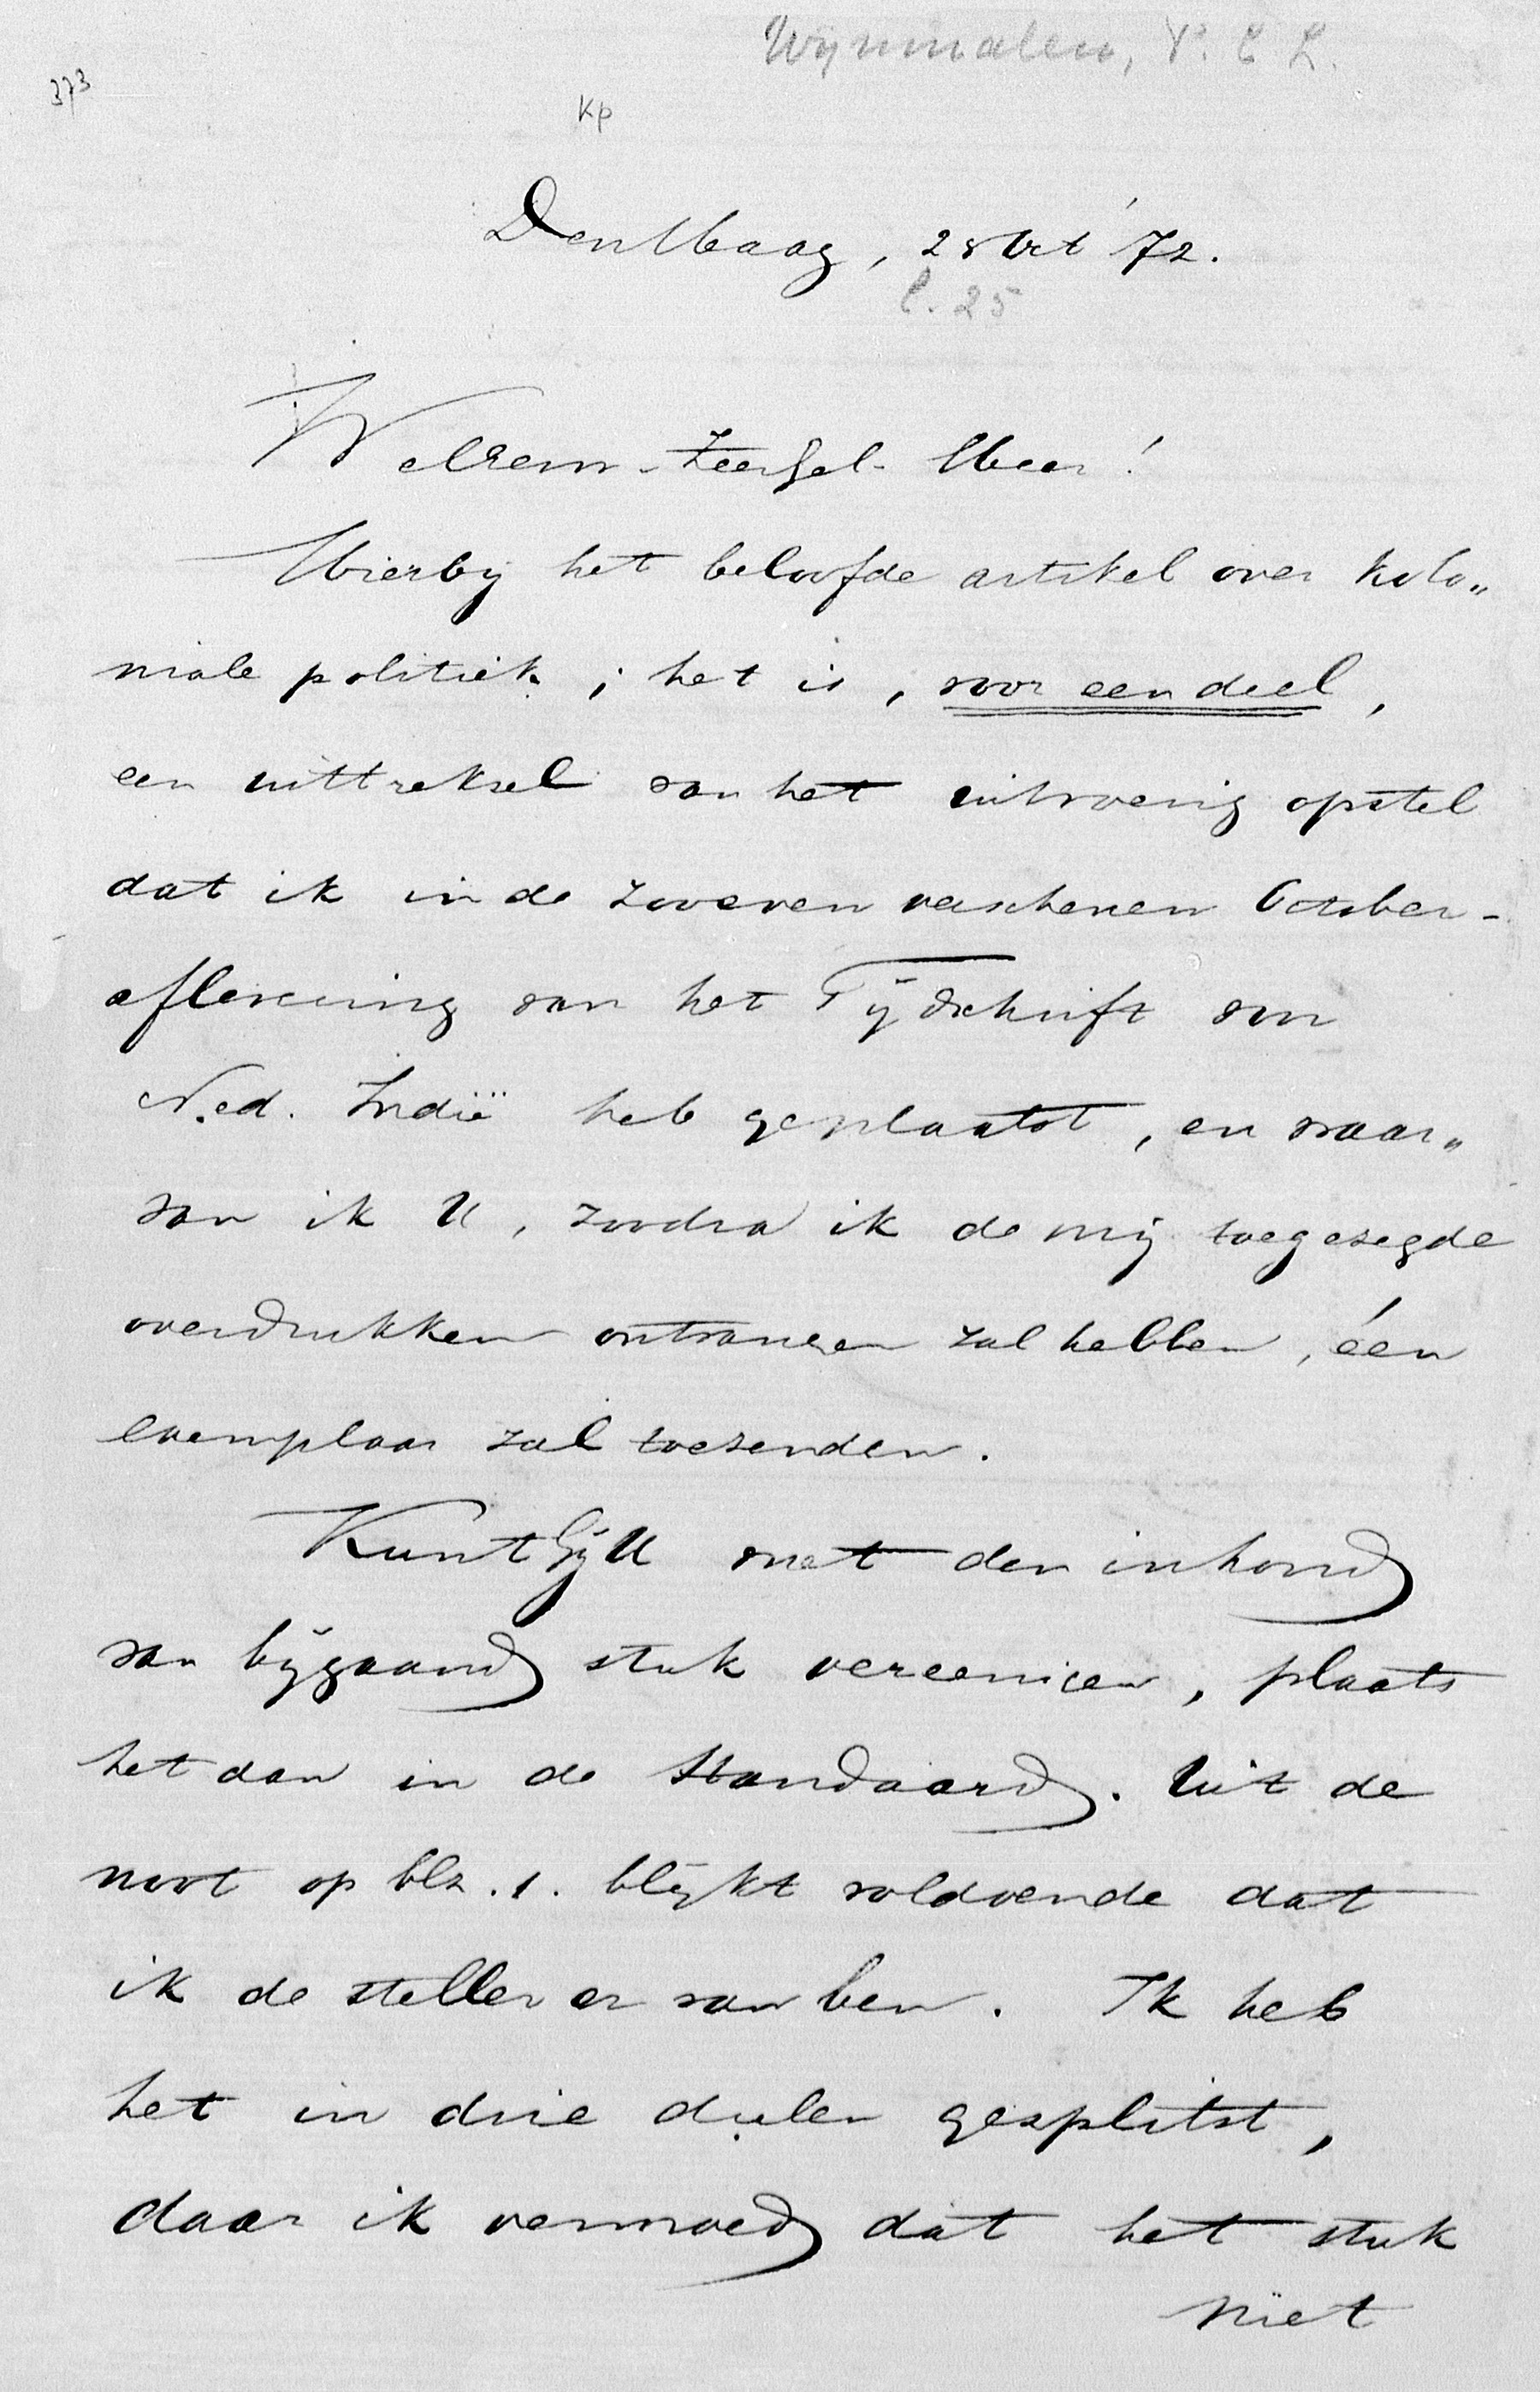 Wijnmalen, T. C. L.
373
Kp
Den Haag, 28 Oct '72.
C. 25
WelEerw. Zeergel. Heer!
Hierbij het beloofde artikel over kolo„
niale politiek; het is, voor een deel,
een uittreksel van het uitvoerig opstel
dat ik in de zooeven verschenen October-
aflevering van het Tijdschrift van
Ned. Indië heb geplaatst, en waar„
van ik U, zoodra ik de mij toegezegde
overdrukken ontvangen zal hebben, één
exemplaar zal toezenden.
Kunt Gij U met den inhoud
van bijgaand stuk vereenigen, plaats
het dan in de Standaard. Uit de
noot op blz. 1. blijkt voldoende dat
ik de steller er van ben. Ik heb
het in drie deelen gesplitst,
daar ik vermoed dat het stuk
niet